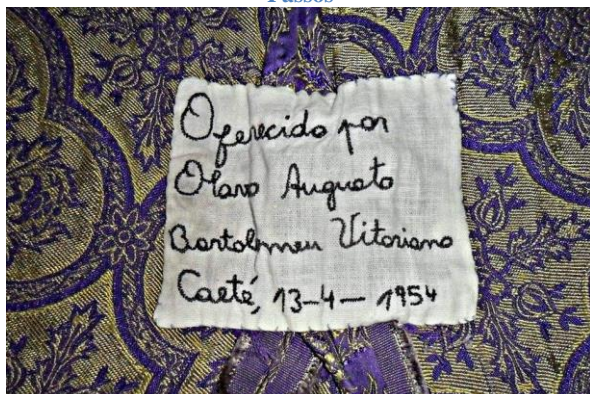 Passos
Oferecido por
Olavo Augusto
Bartolomeu Vitoriano
Caeté, 13-4-1954